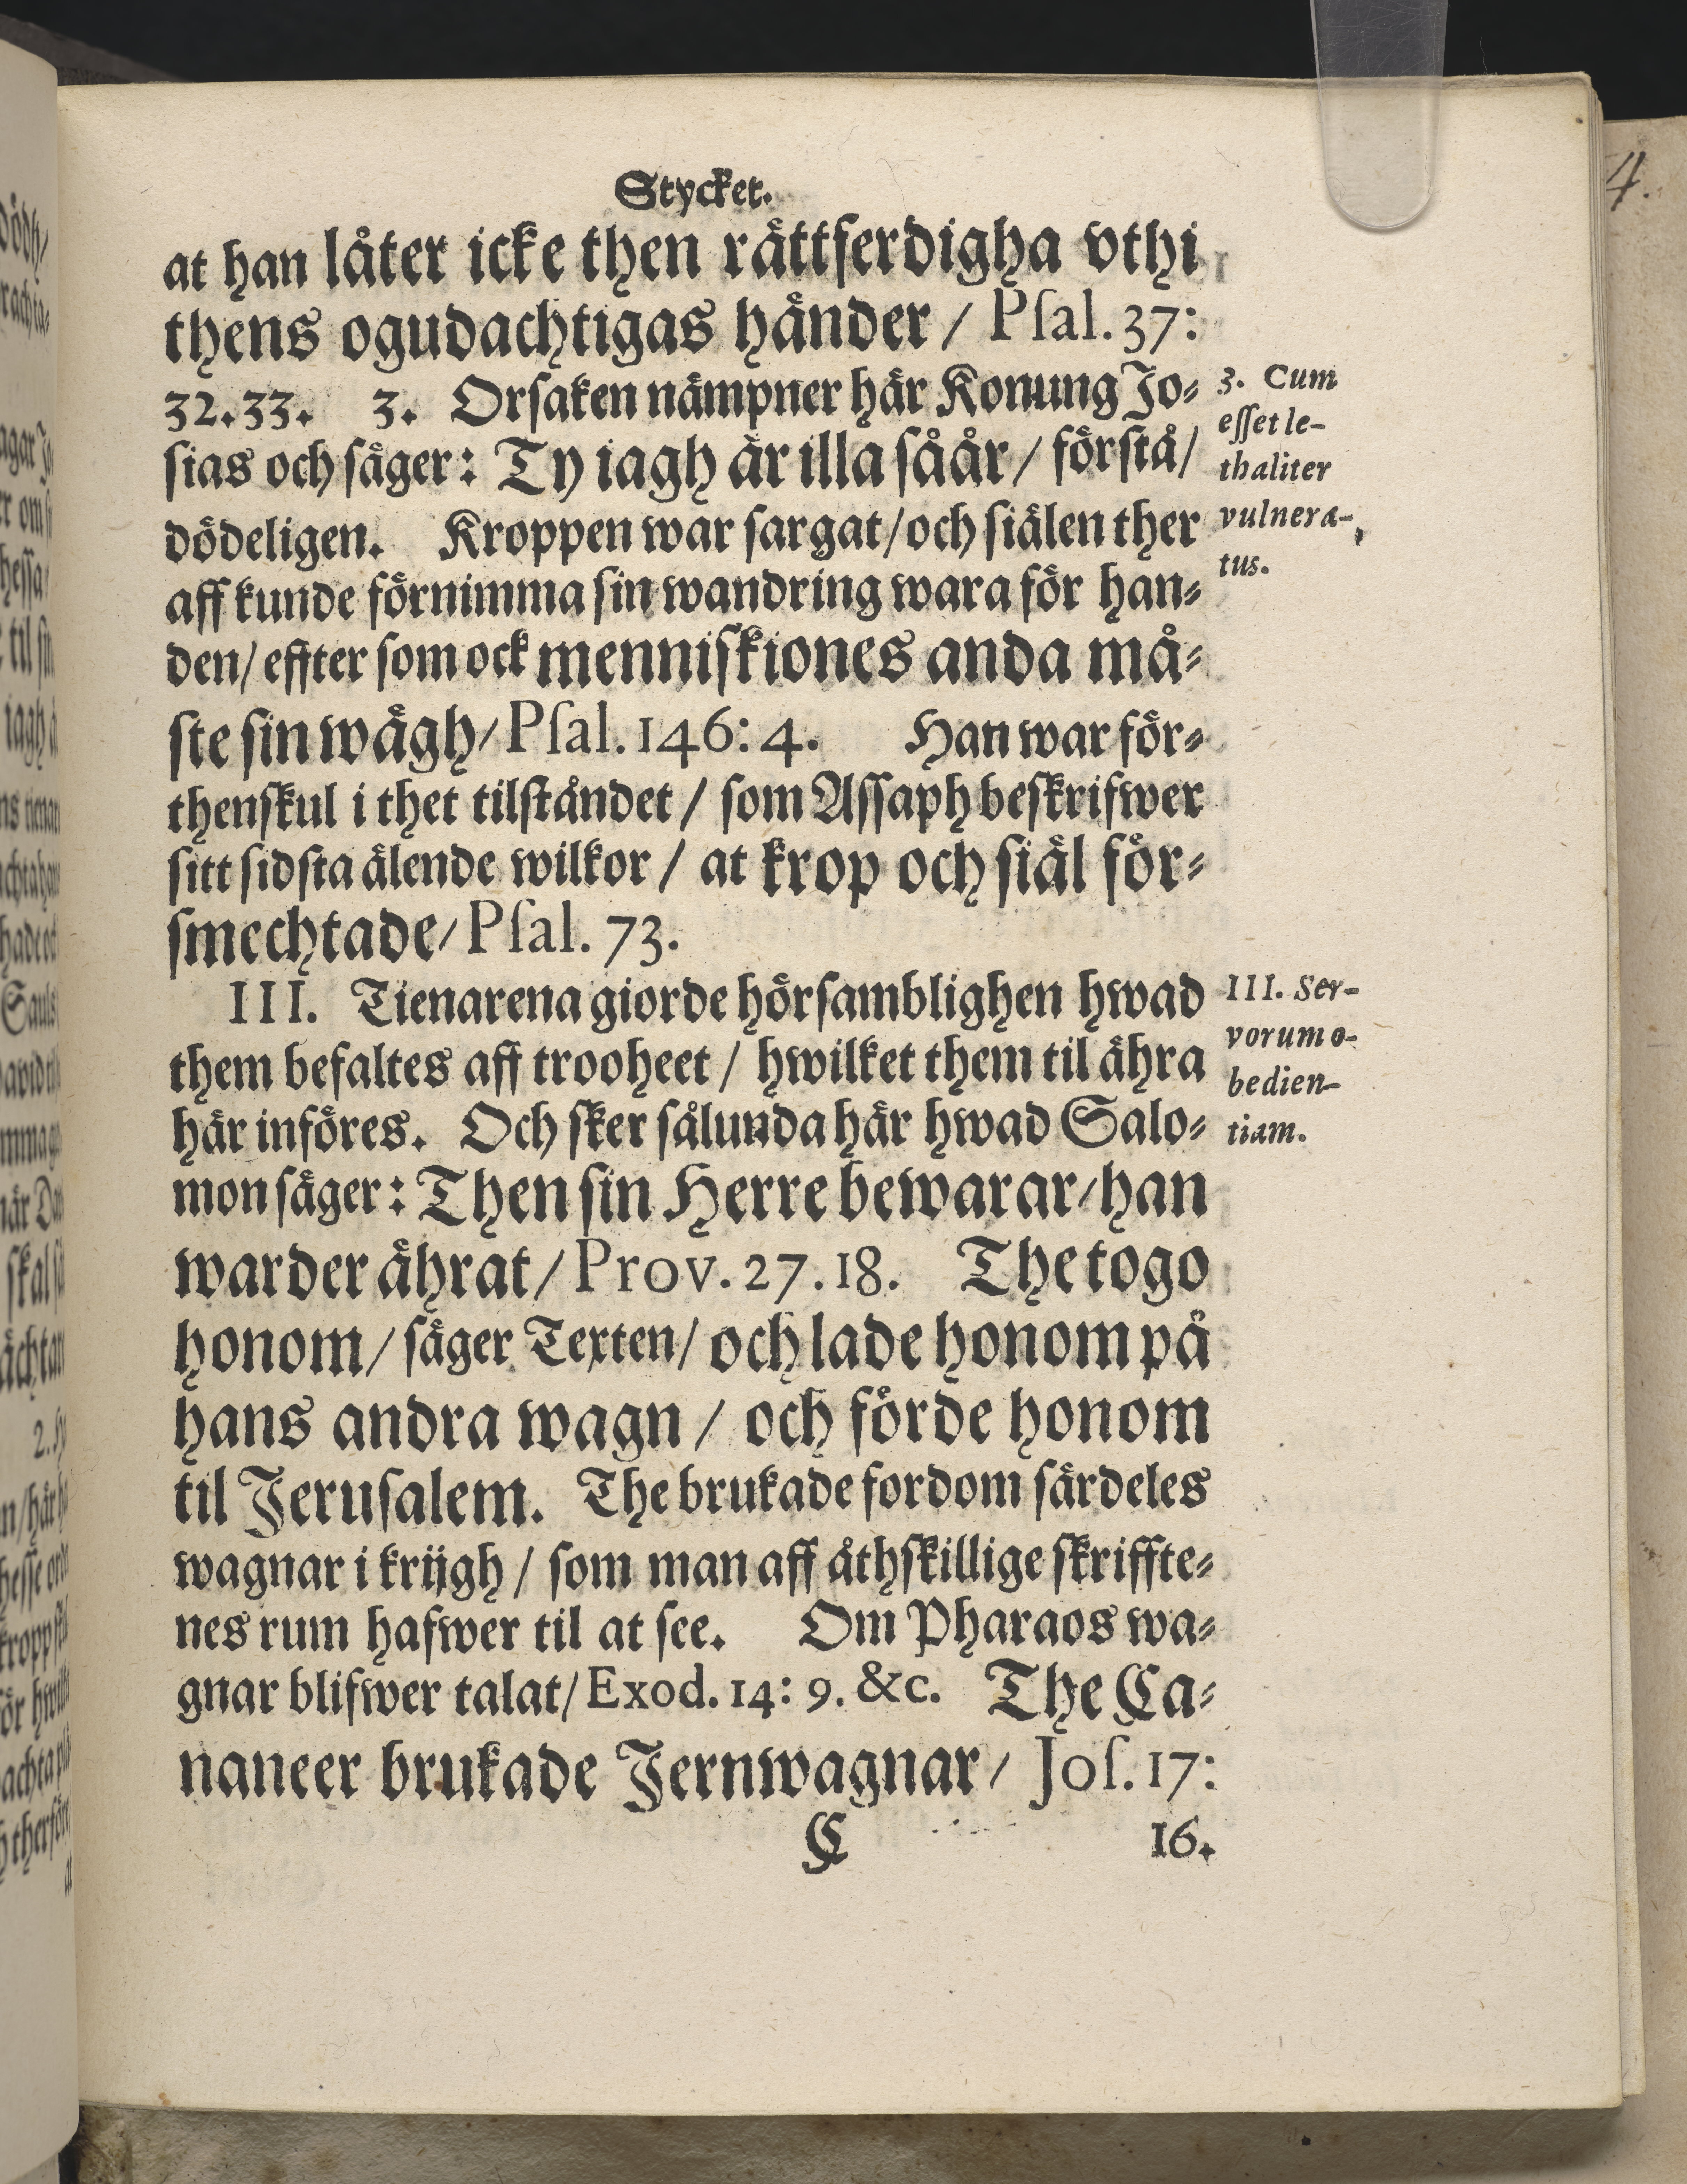 Stycket.
at han låter icke then rättferdigha vthi
thens ogudachtigas händer / Pſal. 37:
32. 33. 3. Orſaken nämpner här Konung Jo⸗
ſias och ſäger: Ty iagh är illa ſåår / förſtå/
dödeligen. Kroppen war ſargat/och ſiälen ther
aff kunde förnimma ſin wandring wara för han⸗
den/ effter ſom ock menniſkiones anda må⸗
ſte ſin wägh/ Pſal. 146: 4. Han war för⸗
thenſkul i thet tilſtåndet / ſom Aſſaph beſkrifwer
ſitt ſidſta älende wilkor / at krop och ſiäl för⸗
ſmechtade/ Pſal. 73.
III. Tienarena giorde hörſamblighen hwad
them befaltes aff trooheet / hwilket them til ähra
här införes. Och ſker ſålunda här hwad Salo⸗
mon ſäger: Then ſin Herre bewarar/han
warder ährat / Prov. 27. 18. The togo
honom / ſäger Texten/ och lade honom på
hans andra wagn / och förde honom
til Jeruſalem. The brukade fordom ſärdeles
wagnar i krijgh / ſom man aff åthſkillige ſkriffte⸗
nes rum hafwer til at ſee. Om Pharaos wa⸗
gnar blifwer talat/ Exod. 14: 9. &c. The Ca⸗
naneer brukade Jernwagnar / Joſ. 17:
C 16.
3. Cum
eſſet le-
thaliter
vulnera-
tus.
III. Ser-
vorum o-
bedien-
tiam.
4.